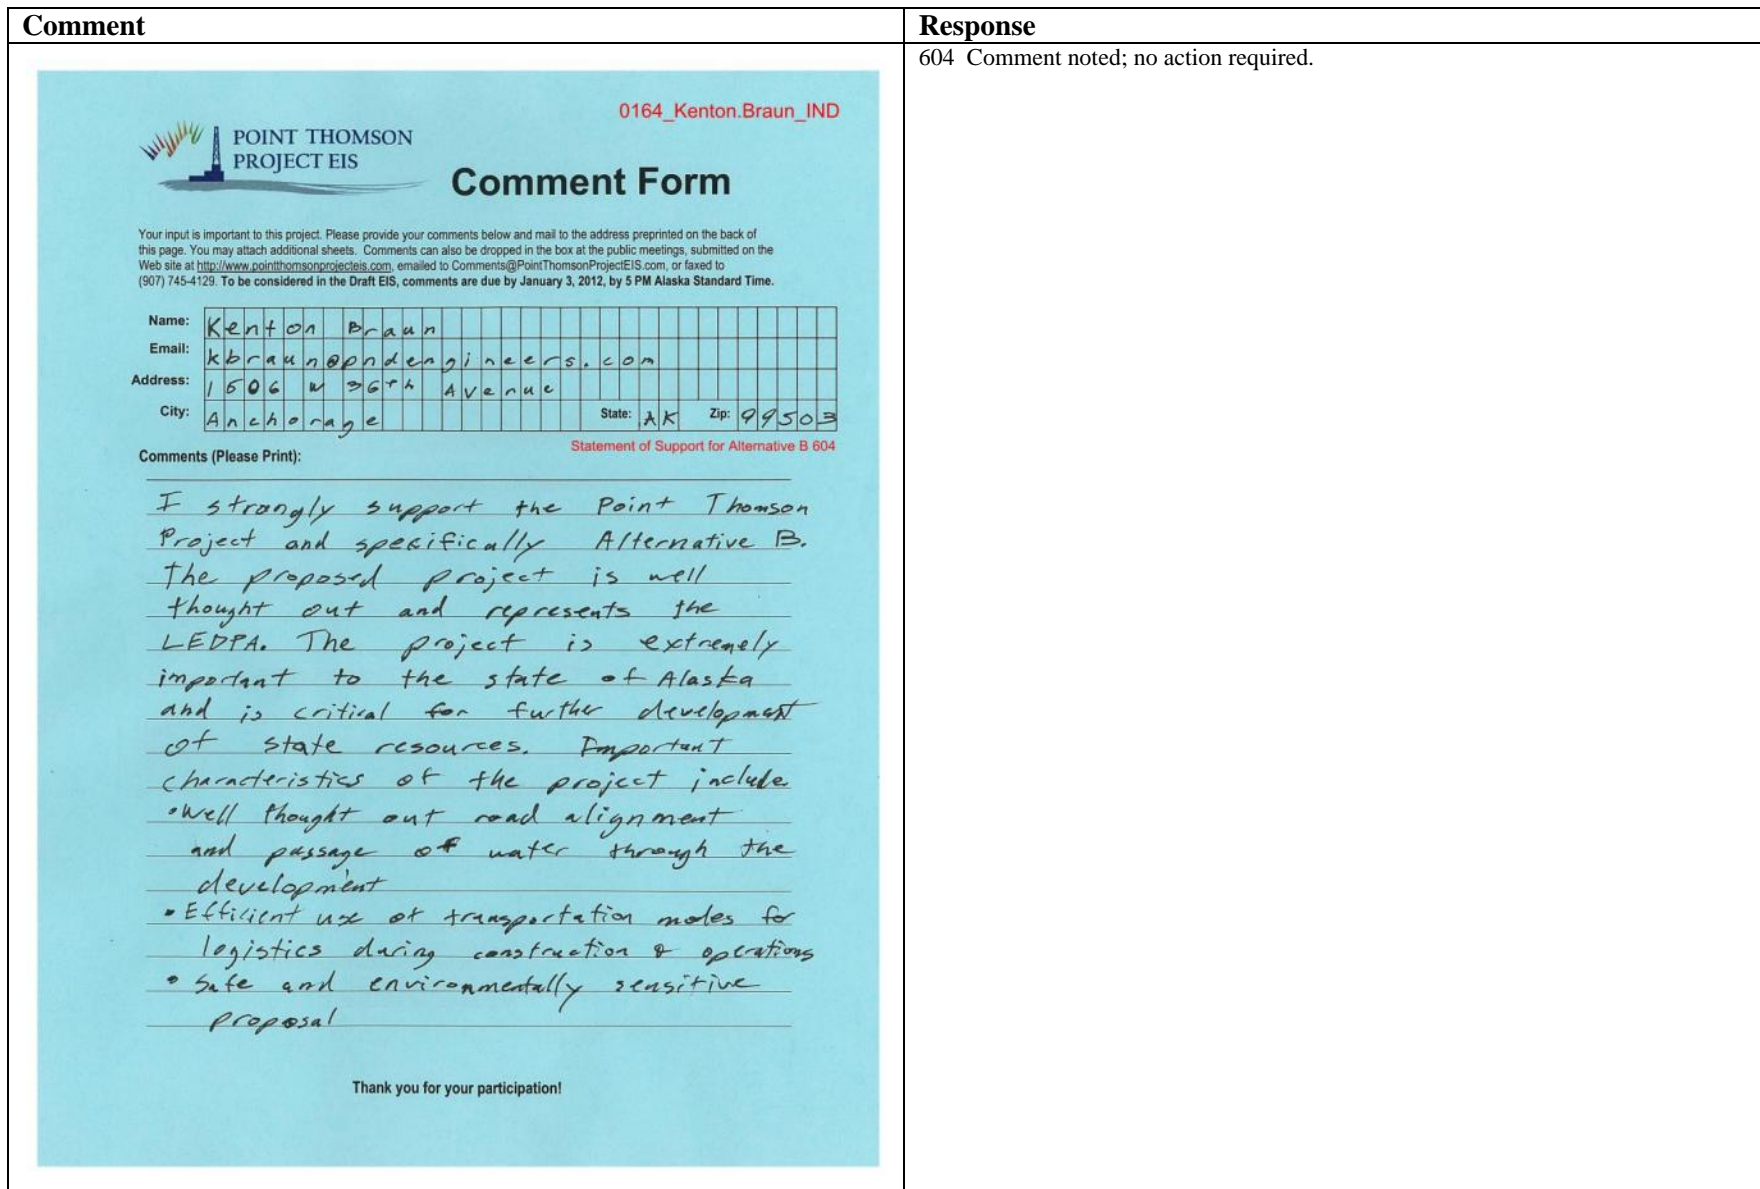 Comment
Response
604 Comment noted; no action required.
0164_Kenton.Braun_IND
POINT THOMSON
PROJECT EIS
Comment Form
Your input is important to this project. Please provide your comments below and mail to the address preprinted on the back of
this page. You may attach additional sheets. Comments can also be dropped in the box at the public meetings, submitted on the
Web site at http://www.pointthomsonprojecteis.com, emailed to Comments@PointThomsonProjectEIS.com, or faxed to
(907) 745-4129. To be considered in the Draft EIS, comments are due by January 3, 2012, by 5 PM Alaska Standard Time.
Name: Kenton Braun
Email: kbraun@pndengineers.com
Address: 1506 W 36th Avenue
City: Anchorage State: AK Zip: 99503
Statement of Support for Alternative B 604
Comments (Please Print):
I strongly support the Point Thomson
Project and specifically Alternative B.
The proposed project is well
thought out and represents the
LEDPA. The project is extremely
important to the state of Alaska
and is critical for further development
of state resources. Important
characteristics of the project include
• Well thought out road alignment
and passage of water through the
development
• Efficient use of transportation modes for
logistics during construction & operations
• Safe and environmentally sensitive
proposal
Thank you for your participation!